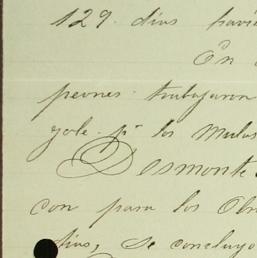 129. dias
En
peones trabajaron
gole. pª los Mulas
Desmonte
con para los Obr
dias, Se concluyo